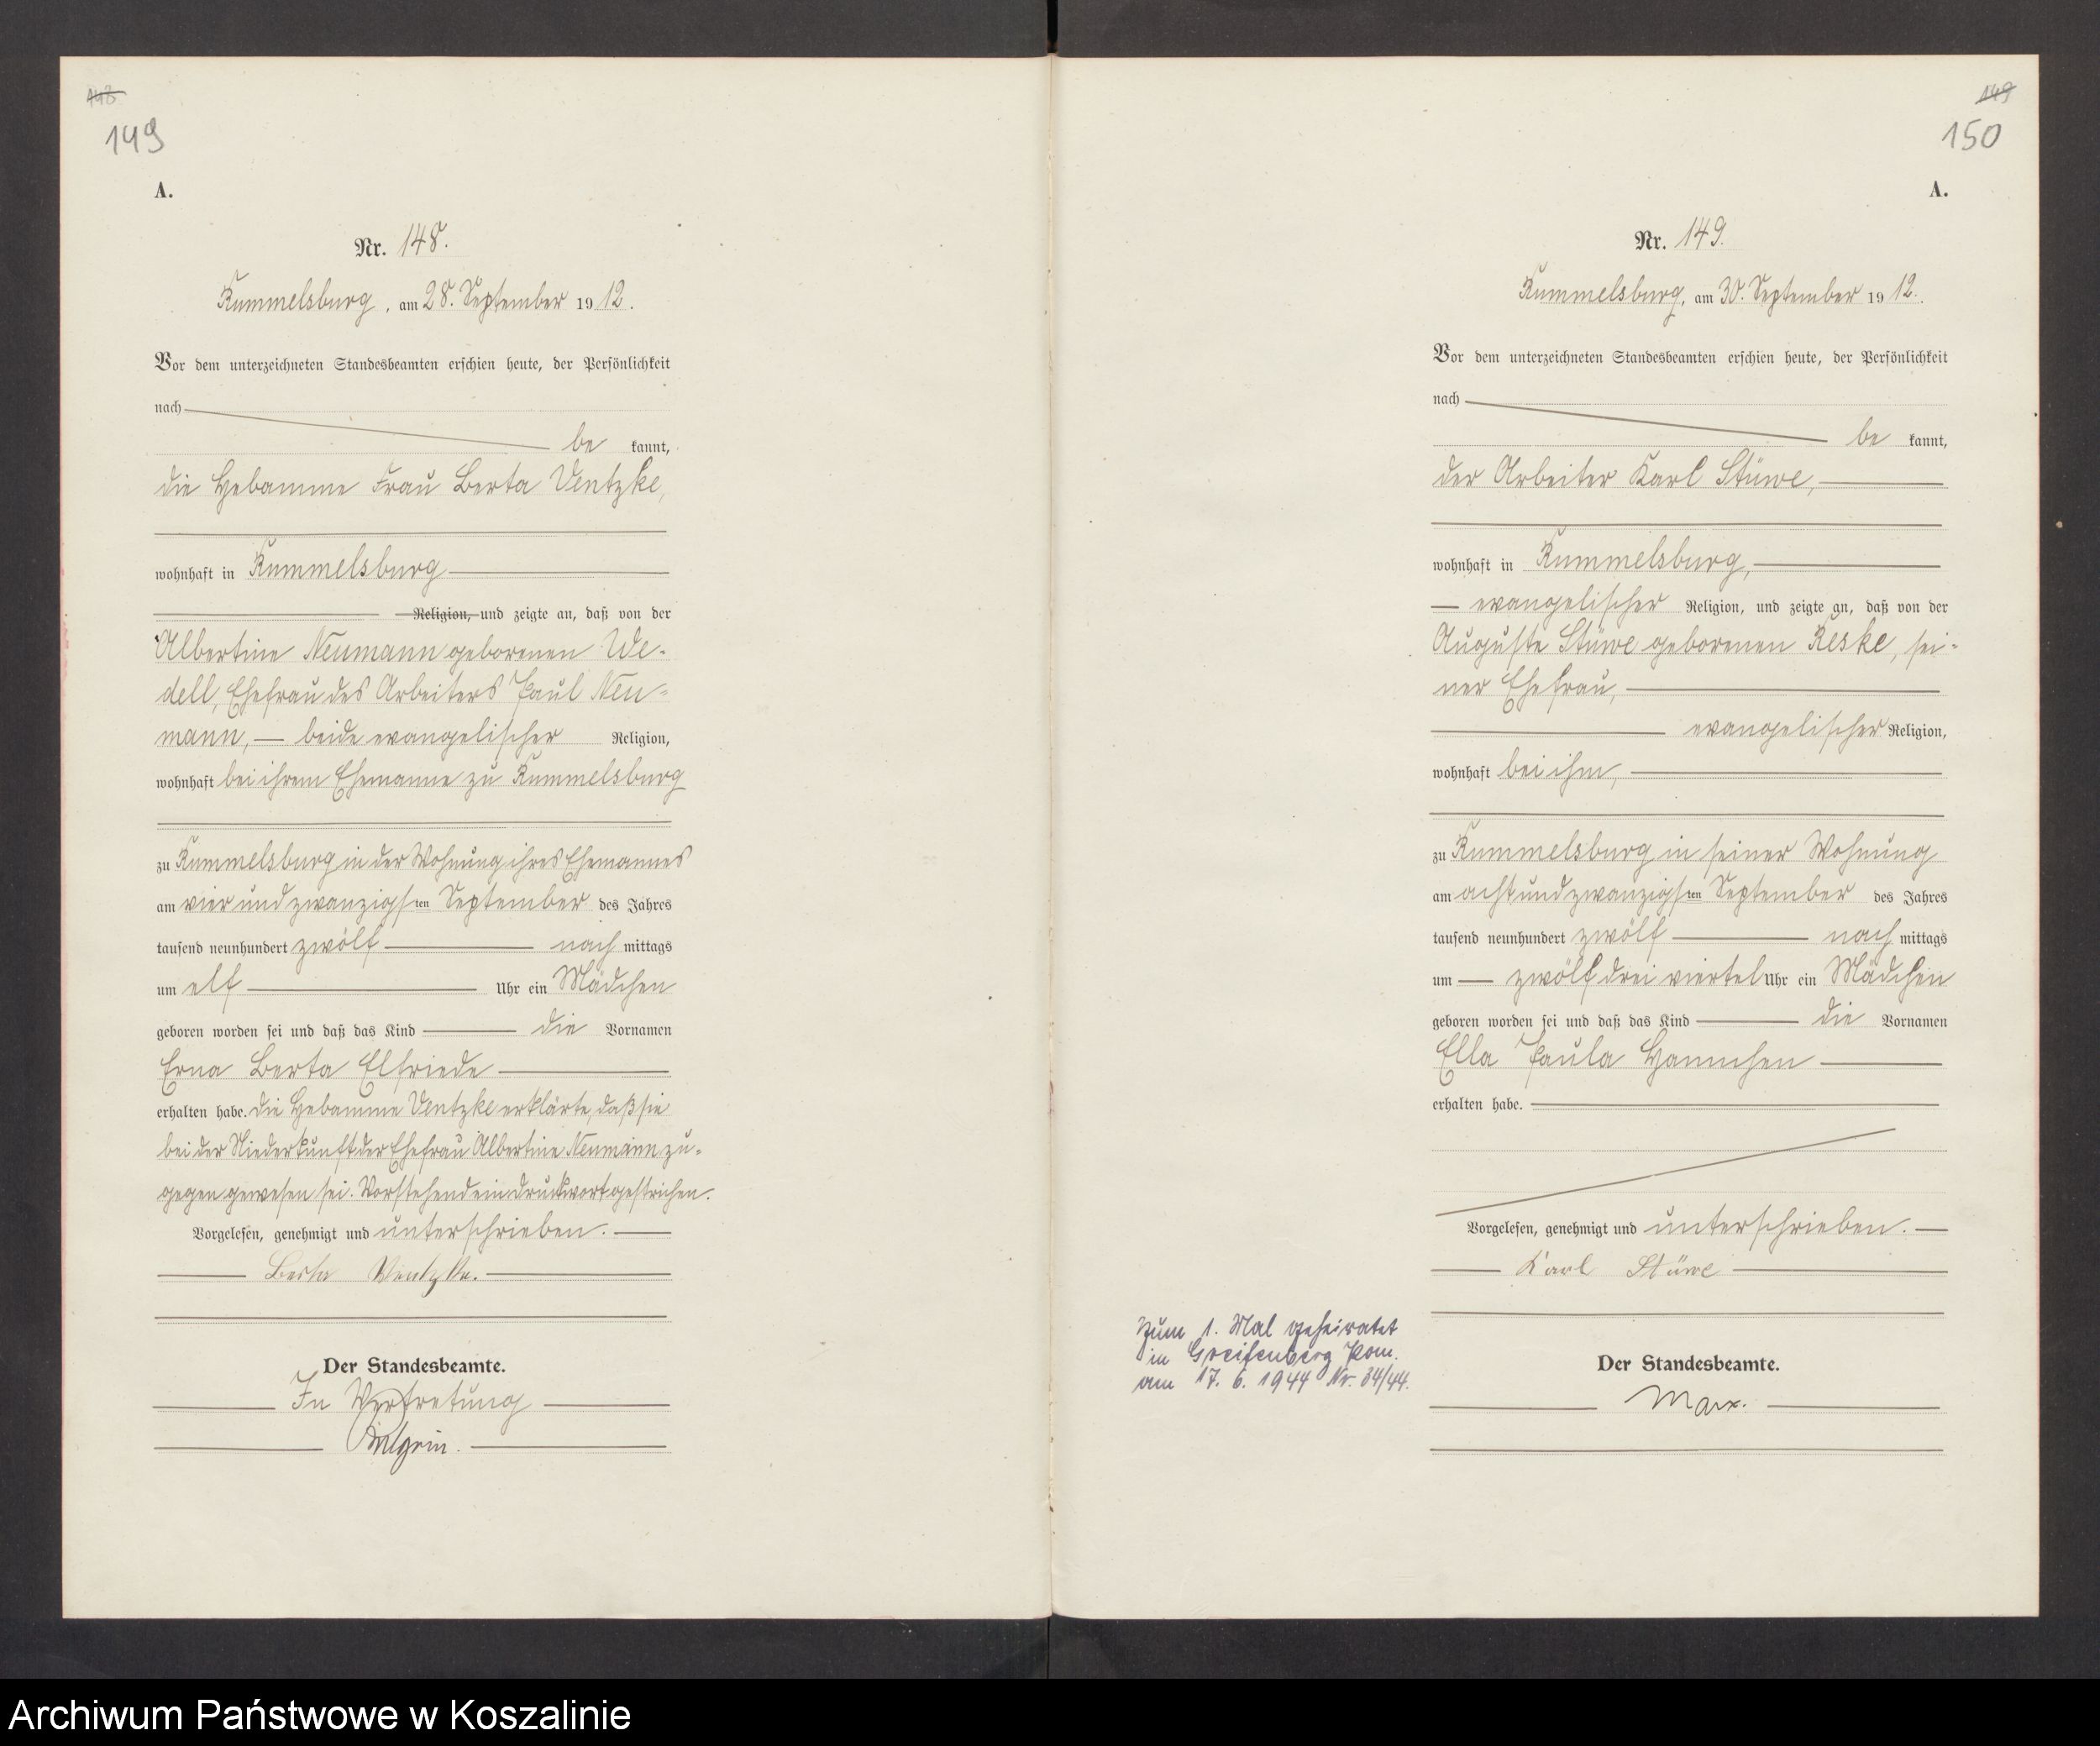 148
149
A.
Nr. 148.
Rummelsburg, am 28. September 1912.
Vor dem unterzeichneten Standesbeamten erschien heute, der Persönlichkeit
nach
be kannt,
die Hebamme Frau Berta Ventzke,
wohnhaft in Rummelsburg
Religion, und zeigte an, daß von der
Albertine Neumann geborenen We-
dell, Ehefrau des Arbeiters Paul Neu-
mann, beide evangelischer Religion,
wohnhaft bei ihrem Ehemanne zu Rummelsburg
zu Rummelsburg in der Wohnung ihres Ehemannes
am vierundzwanzigsten September des Jahres
tausend neunhundert zwölf nach mittags
um elf Uhr ein Mädchen
geboren worden sei und daß das Kind die Vornamen
Erna Berta Elfriede
erhalten habe. Die Hebamme Ventzke erklärte, daß sie
bei der Niederkunft der Ehefrau Albertine Neumann zu-
gegen gewesen sei. Vorstehend ein Druckwort gestrichen.
Vorgelesen, genehmigt und unterschrieben.
Berta Ventzke.
Der Standesbeamte.
In Vertretung
149
150
A.
Nr. 149.
Rummelsburg, am 30. September 1912.
Vor dem unterzeichneten Standesbeamten erschien heute, der Persönlichkeit
nach
be kannt,
der Arbeiter Karl Stüwe,
wohnhaft in Rummelsburg,
evangelischer Religion, und zeigte an, daß von der
Auguste Stüwe geborenen Reske, sei-
ner Ehefrau,
evangelischer Religion,
wohnhaft bei ihm,
zu Rummelsburg in seiner Wohnung
am achtundzwanzigsten September des Jahres
tausend neunhundert zwölf nach mittags
um zwölf drei viertel Uhr ein Mädchen
geboren worden sei und daß das Kind die Vornamen
Ella Paula Hannchen
erhalten habe.
Vorgelesen, genehmigt und unterschrieben.
Karl Stüwe
Zum 1. Mal geheiratet
in Greifenberg Pom.
am 17. 6. 1944 Nr. 34/44.
Der Standesbeamte.
Marx.
Archiwum Państwowe w Koszalinie